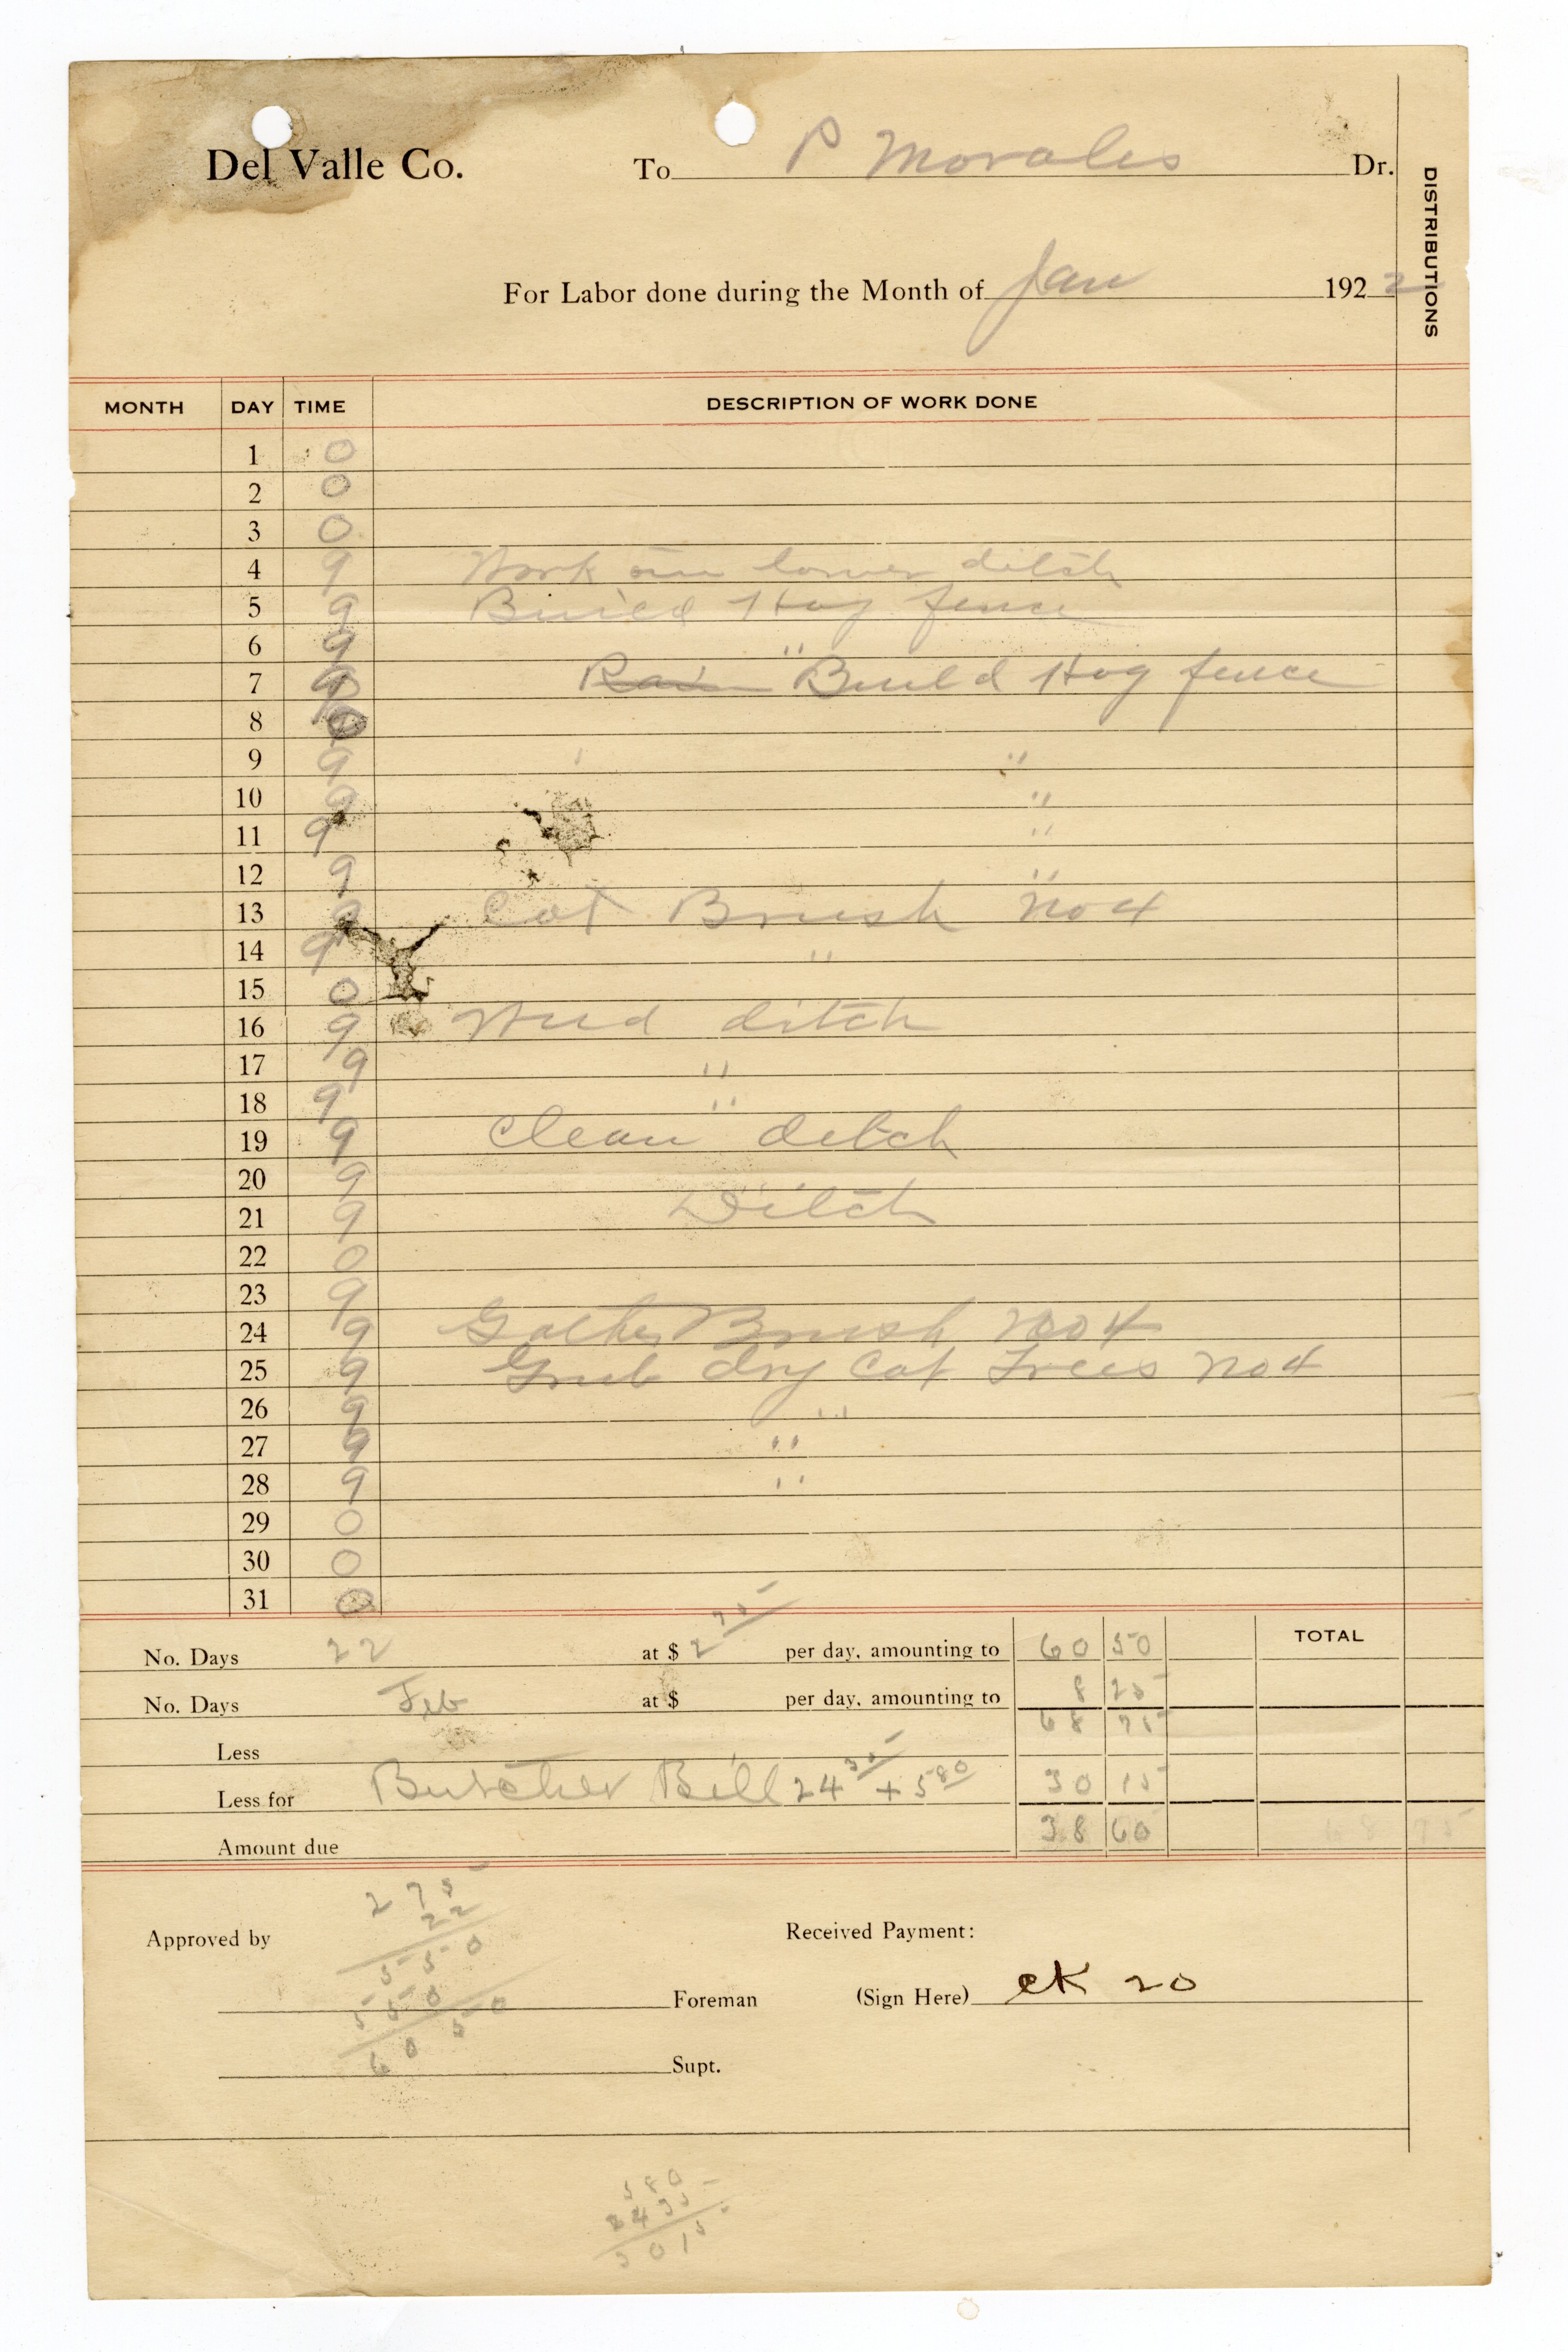 Del Valle Co. To P Morales Dr.
DISTRIBUTIONS
For Labor done during the Month of Jan 1922
MONTH DAY TIME DESCRIPTION OF WORK DONE
1 0
2 0
3 0
4 9 Work on lower ditch
5 9 Build Hog fence
6 9 "
7 9 Rain Build Hog fence
8 0
9 9 "
10 9 "
11 9 "
12 9 "
13 9 Cot Brush No 4
14 9 "
15 0
16 9 Weed ditch
17 9 "
18 9 "
19 9 Clean ditch
20 9 "
21 9 Ditch
22 0
23 9
24 9 Gather Brush No 4
25 9 Grub dry Cot Trees No 4
26 9 "
27 9 "
28 9 "
29 0
30 0
31 0
TOTAL
No. Days 22 at $ 2 75 per day, amounting to 60 50
No. Days Feb at $ per day, amounting to 8 25
Less 68 75
Less for Butcher Bill 24 35 + 5 80 30 15
Amount due 38 60 68 75
2 75
22
5 50
55 0
60 50
Approved by Received Payment:
Foreman (Sign Here) ck 20
Supt.
5 80
24 35
30 15